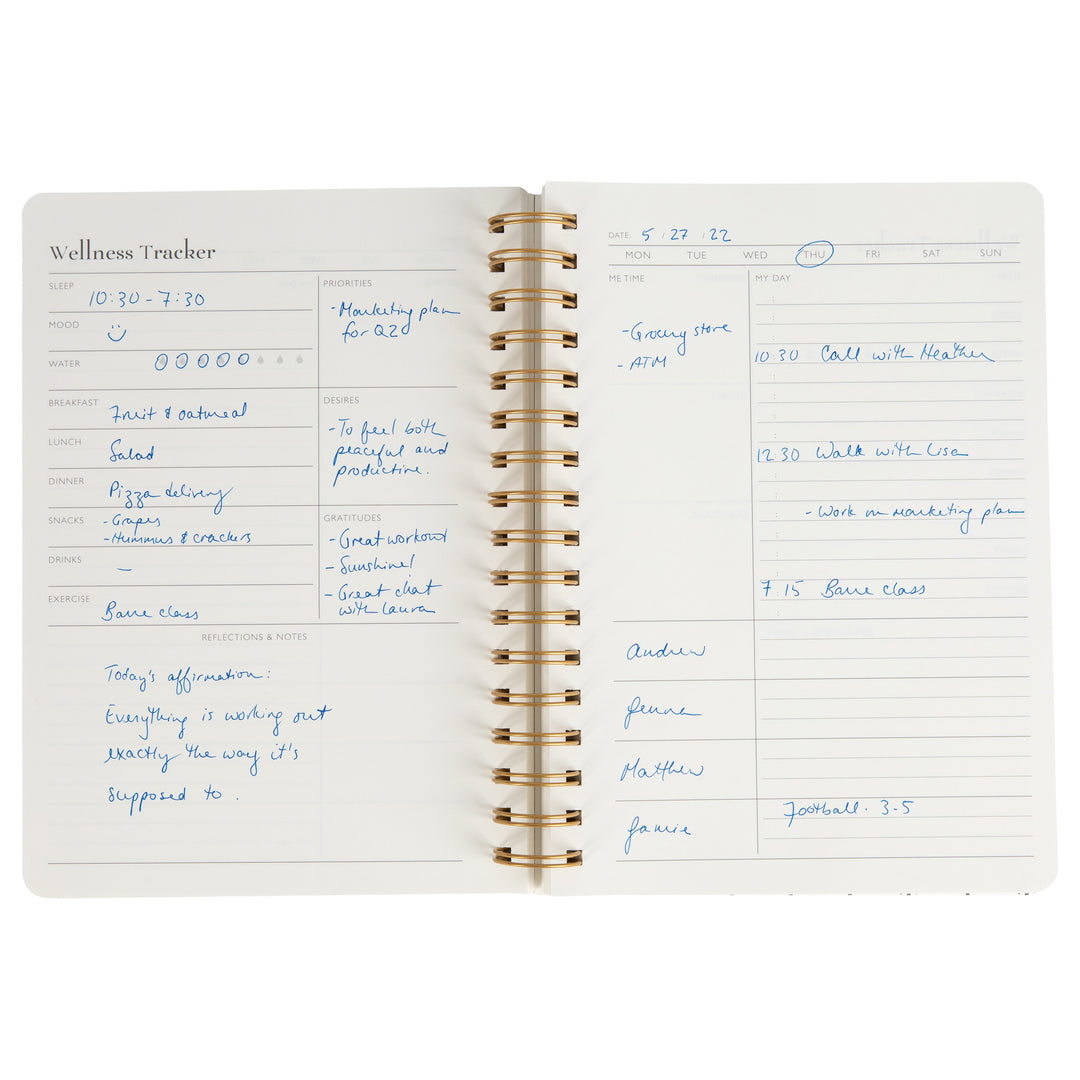 Wellness Tracker
SLEEP
10:30 - 7:30
MOOD
WATER
BREAKFAST
Fruit & oatmeal
LUNCH
Salad
DINNER
Pizza delivery
SNACKS
- Grapes
- Hummus & crackers
DRINKS
—
EXERCISE
Barre class
PRIORITIES
- Marketing plan
for Q2
DESIRES
- To feel both
peaceful and
productive.
GRATITUDES
- Great workout
- Sunshine!
- Great chat
with Laura
REFLECTIONS & NOTES
Today's affirmation:
Everything is working out
exactly the way it's
supposed to.
DATE: 5 / 27 / 22
MON TUE WED THU FRI SAT SUN
ME TIME
- Grocery store
- ATM
MY DAY
10:30 Call with Heather
12:30 Walk with Lisa
- Work on marketing plan
7:15 Barre class
Andrew
Jenna
Matthew
Jamie
Football · 3-5